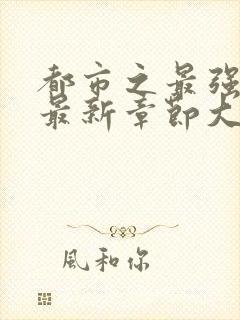 都市之最强
最新章節大
風和你